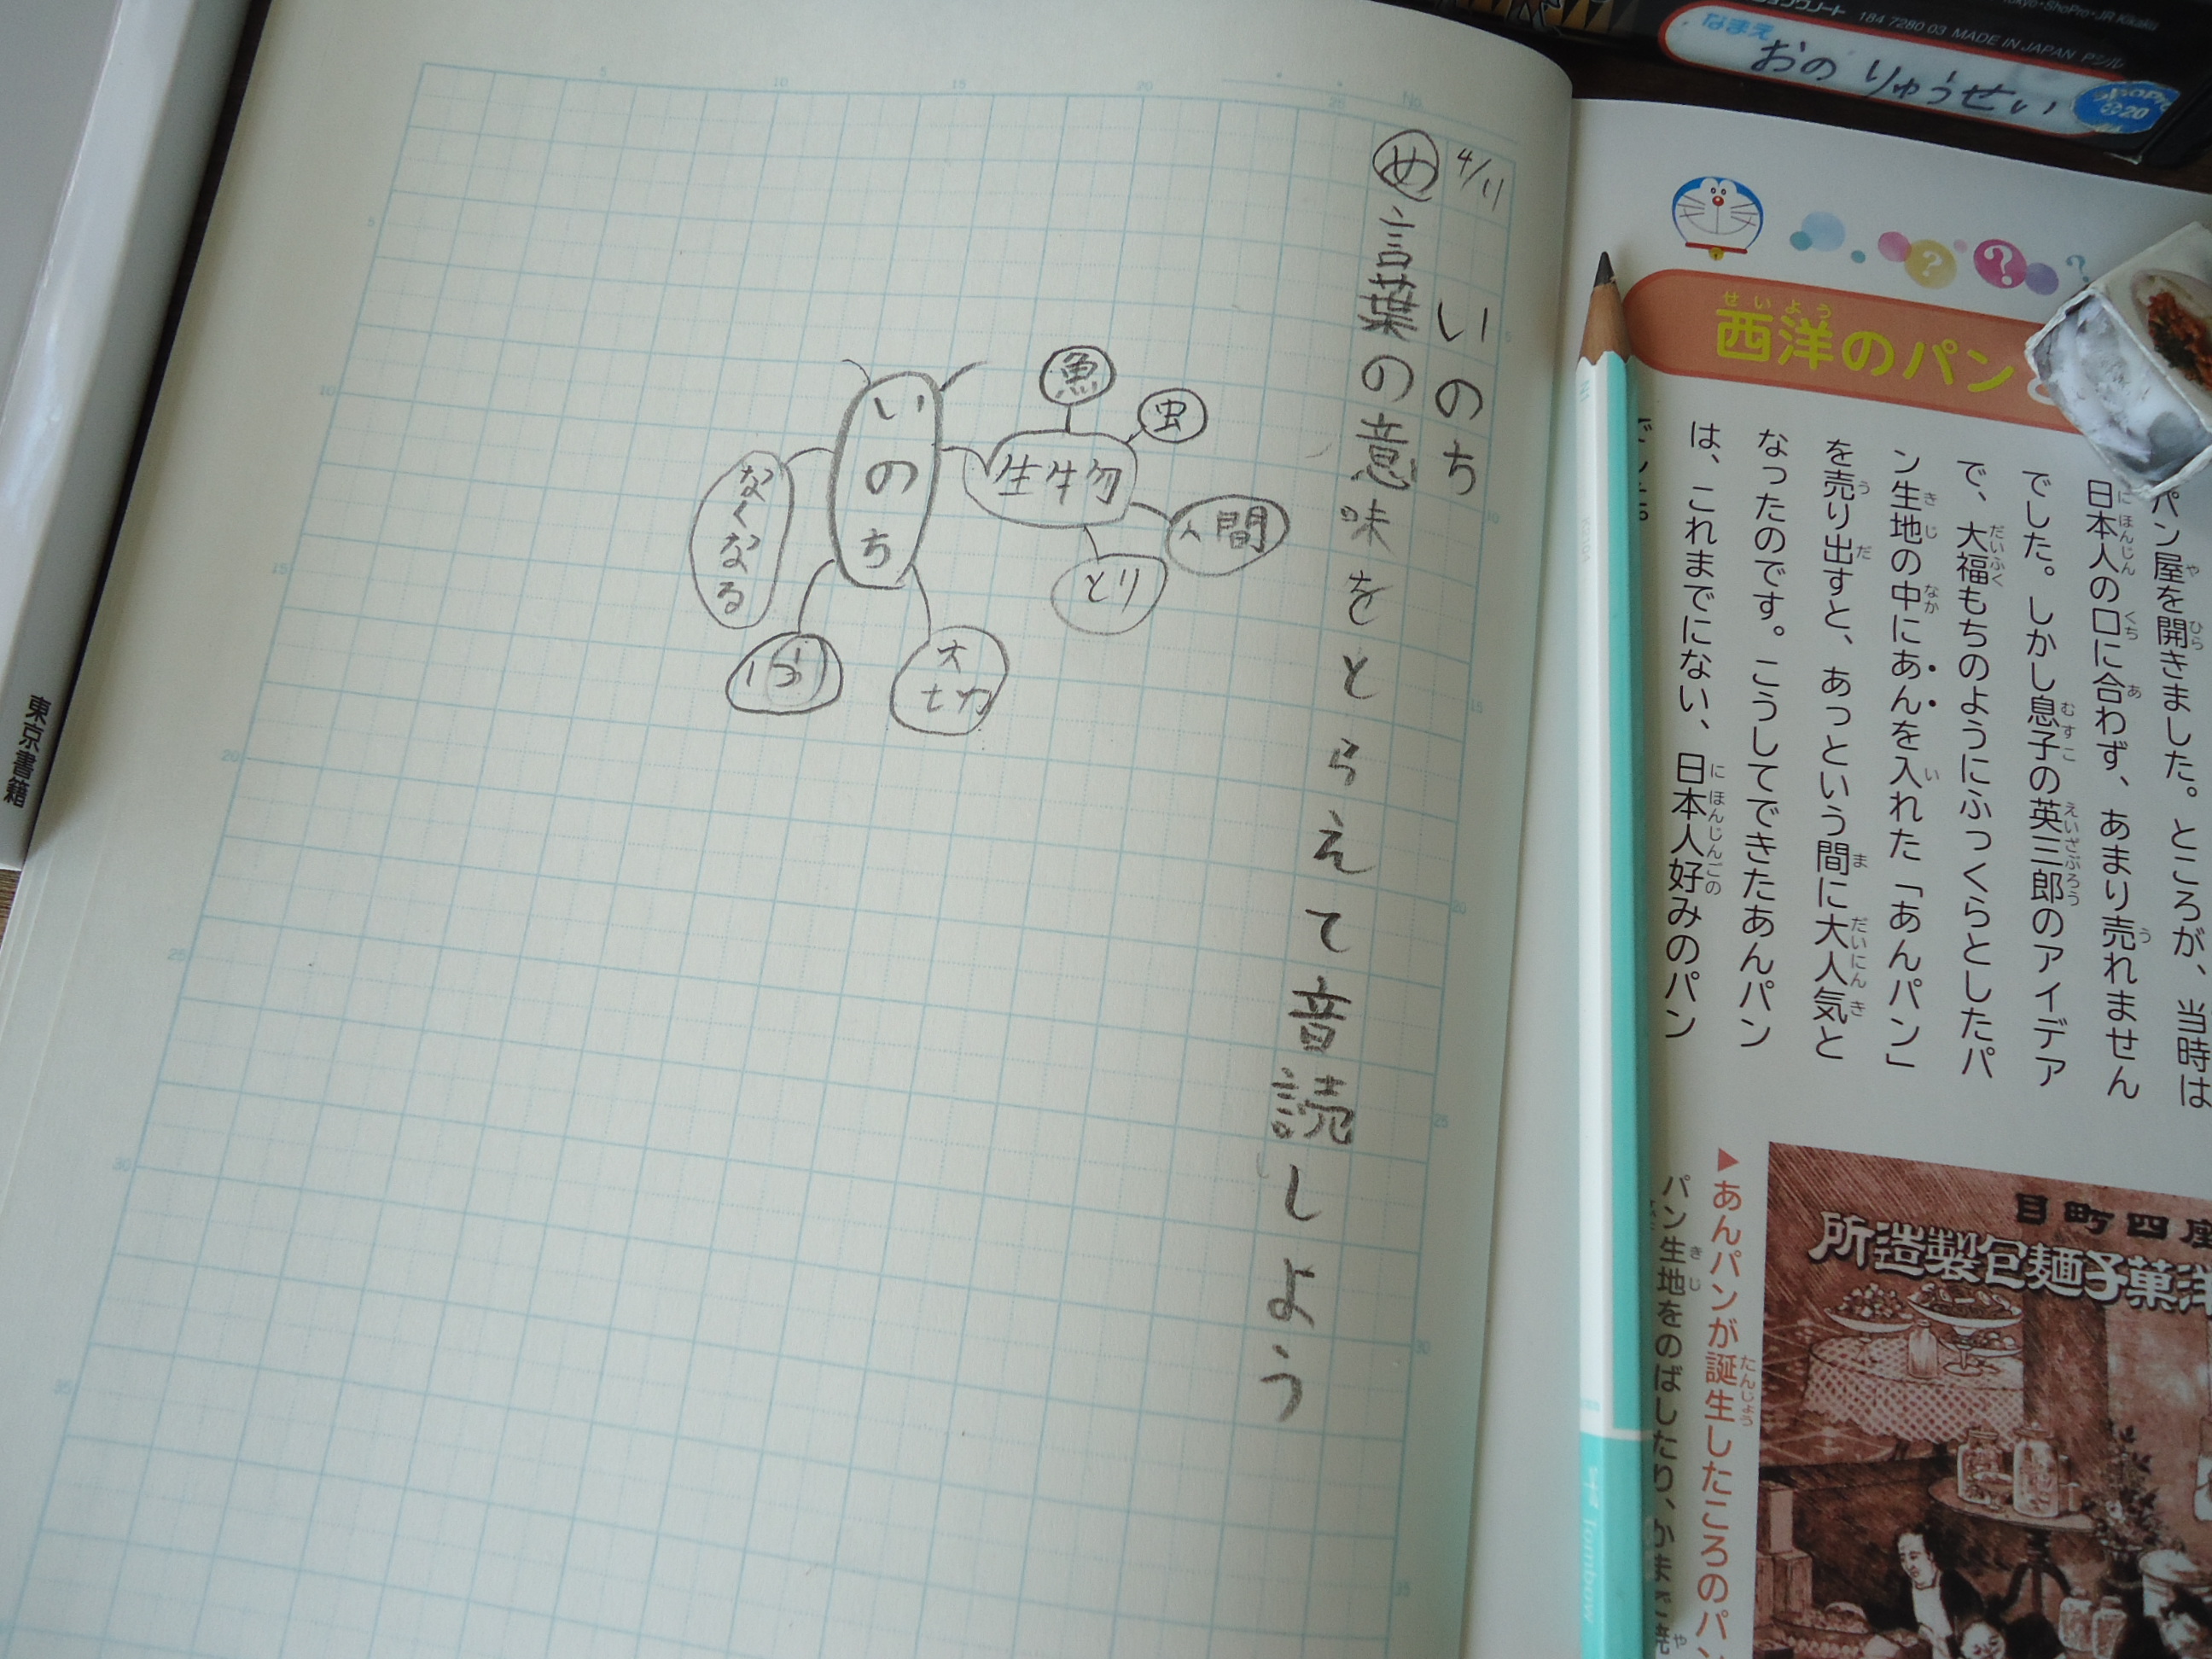 4/11
いのち
め 言葉の意味をとらえて音読しよう
いのち
生物
魚
虫
人間
とり
大切
なくなる
東京書籍
なまえ
おの りゅうせい
184 7280 03 MADE IN JAPAN
西洋のパン
パン屋を開きました。ところが、当時は
日本人の口に合わず、あまり売れません
でした。しかし息子の英三郎のアイデア
で、大福もちのようにふっくらとしたパ
ン生地の中にあんを入れた「あんパン」
を売り出すと、あっという間に大人気と
なったのです。こうしてできたあんパン
は、これまでにない、日本人好みのパン
▶あんパンが誕生したころのパン
パン生地をのばしたり、かまで焼
目町四座
所造製包麺子菓洋
Tombow